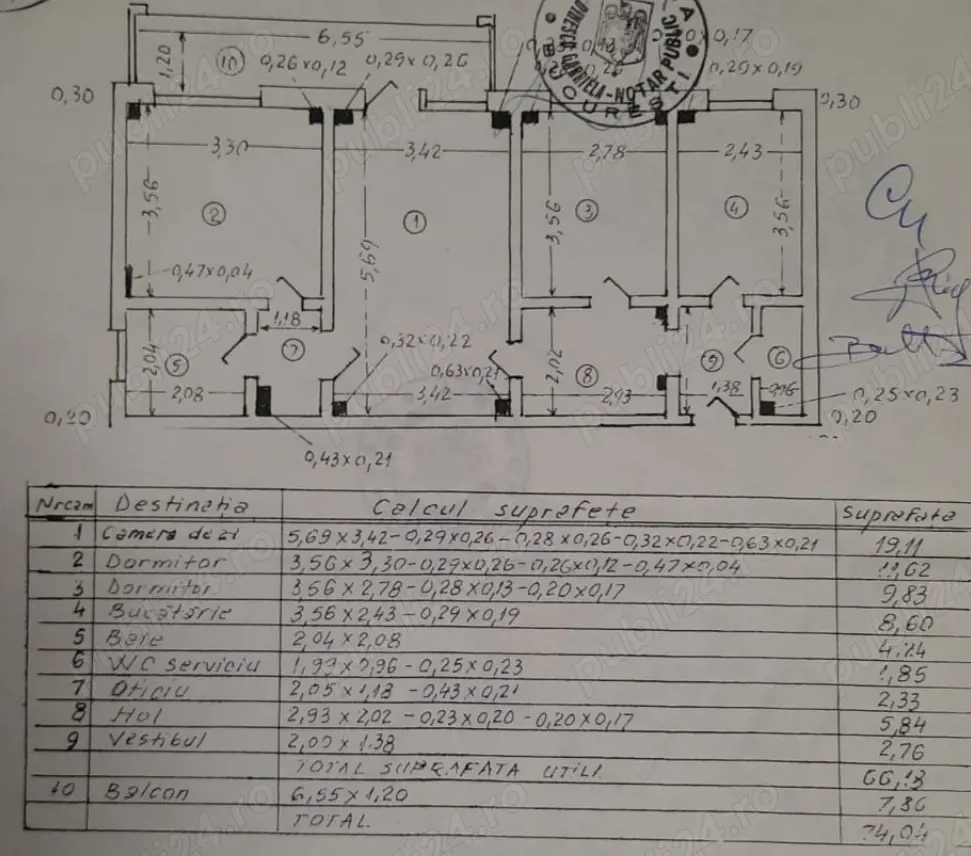 6,55
1,20
10
0,26x0,12
0,29x0,26
0,17
0,29x0,19
NOTAR PUBLIC
BUCUREȘTI
0,30
0,30
3,30
3,42
2,78
2,43
3,56
2
1
3,56
3
4
3,56
0,47x0,04
5,69
1,18
7
0,32x0,22
2,04
5
0,63x0,21
2,02
8
9
6
2,08
3,42
2,93
1,38
0,96
0,25x0,23
0,20
0,20
0,43x0,21
Nr cam Destinația Calcul suprafețe Suprafața
1 Camera de zi 5,69x3,42-0,29x0,26-0,28x0,26-0,32x0,22-0,63x0,21 19,11
2 Dormitor 3,56x3,30-0,29x0,26-0,26x0,12-0,47x0,04 11,62
3 Dormitor 3,56x2,78-0,28x0,13-0,20x0,17 9,83
4 Bucătărie 3,56x2,43-0,29x0,19 8,60
5 Baie 2,04x2,08 4,24
6 WC serviciu 1,99x0,96-0,25x0,23 1,85
7 Oficiu 2,05x1,18-0,43x0,21 2,33
8 Hol 2,93x2,02-0,23x0,20-0,20x0,17 5,84
9 Vestibul 2,00x1.38 2,76
TOTAL SUPRAFAȚA UTILĂ 66,18
10 Balcon 6,55x1,20 7,86
TOTAL 74,04
publi24.ro